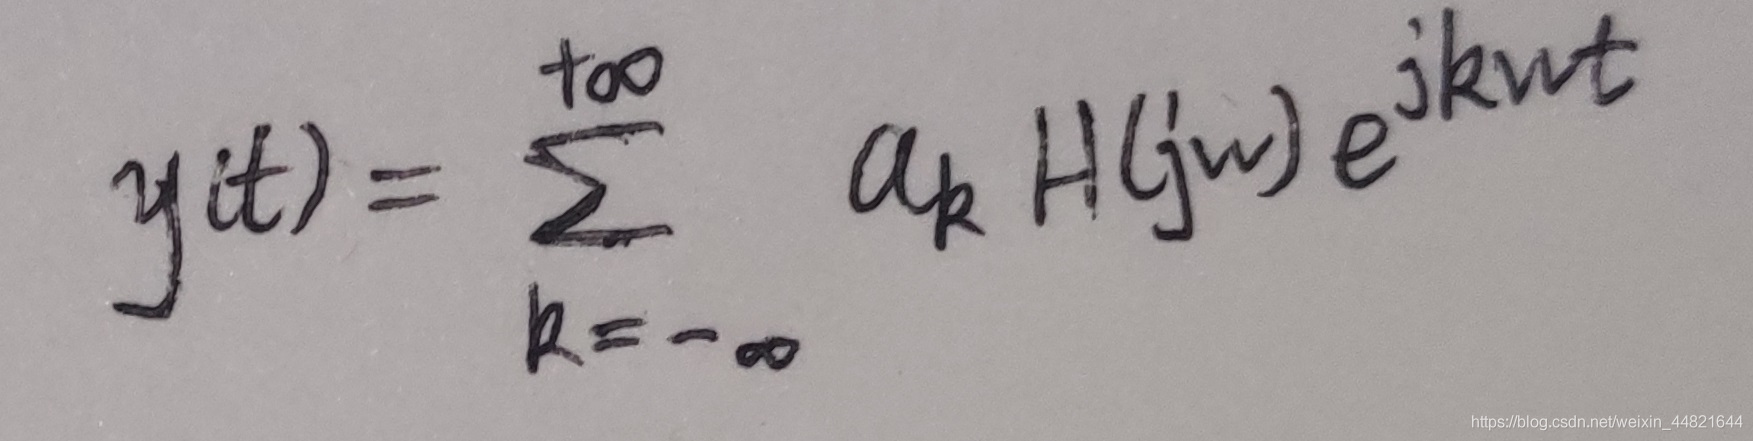 y(t) = \sum_{k=-∞}^{+∞} a_k H(jw) e^{jkwt}
https://blog.csdn.net/weixin_44821644